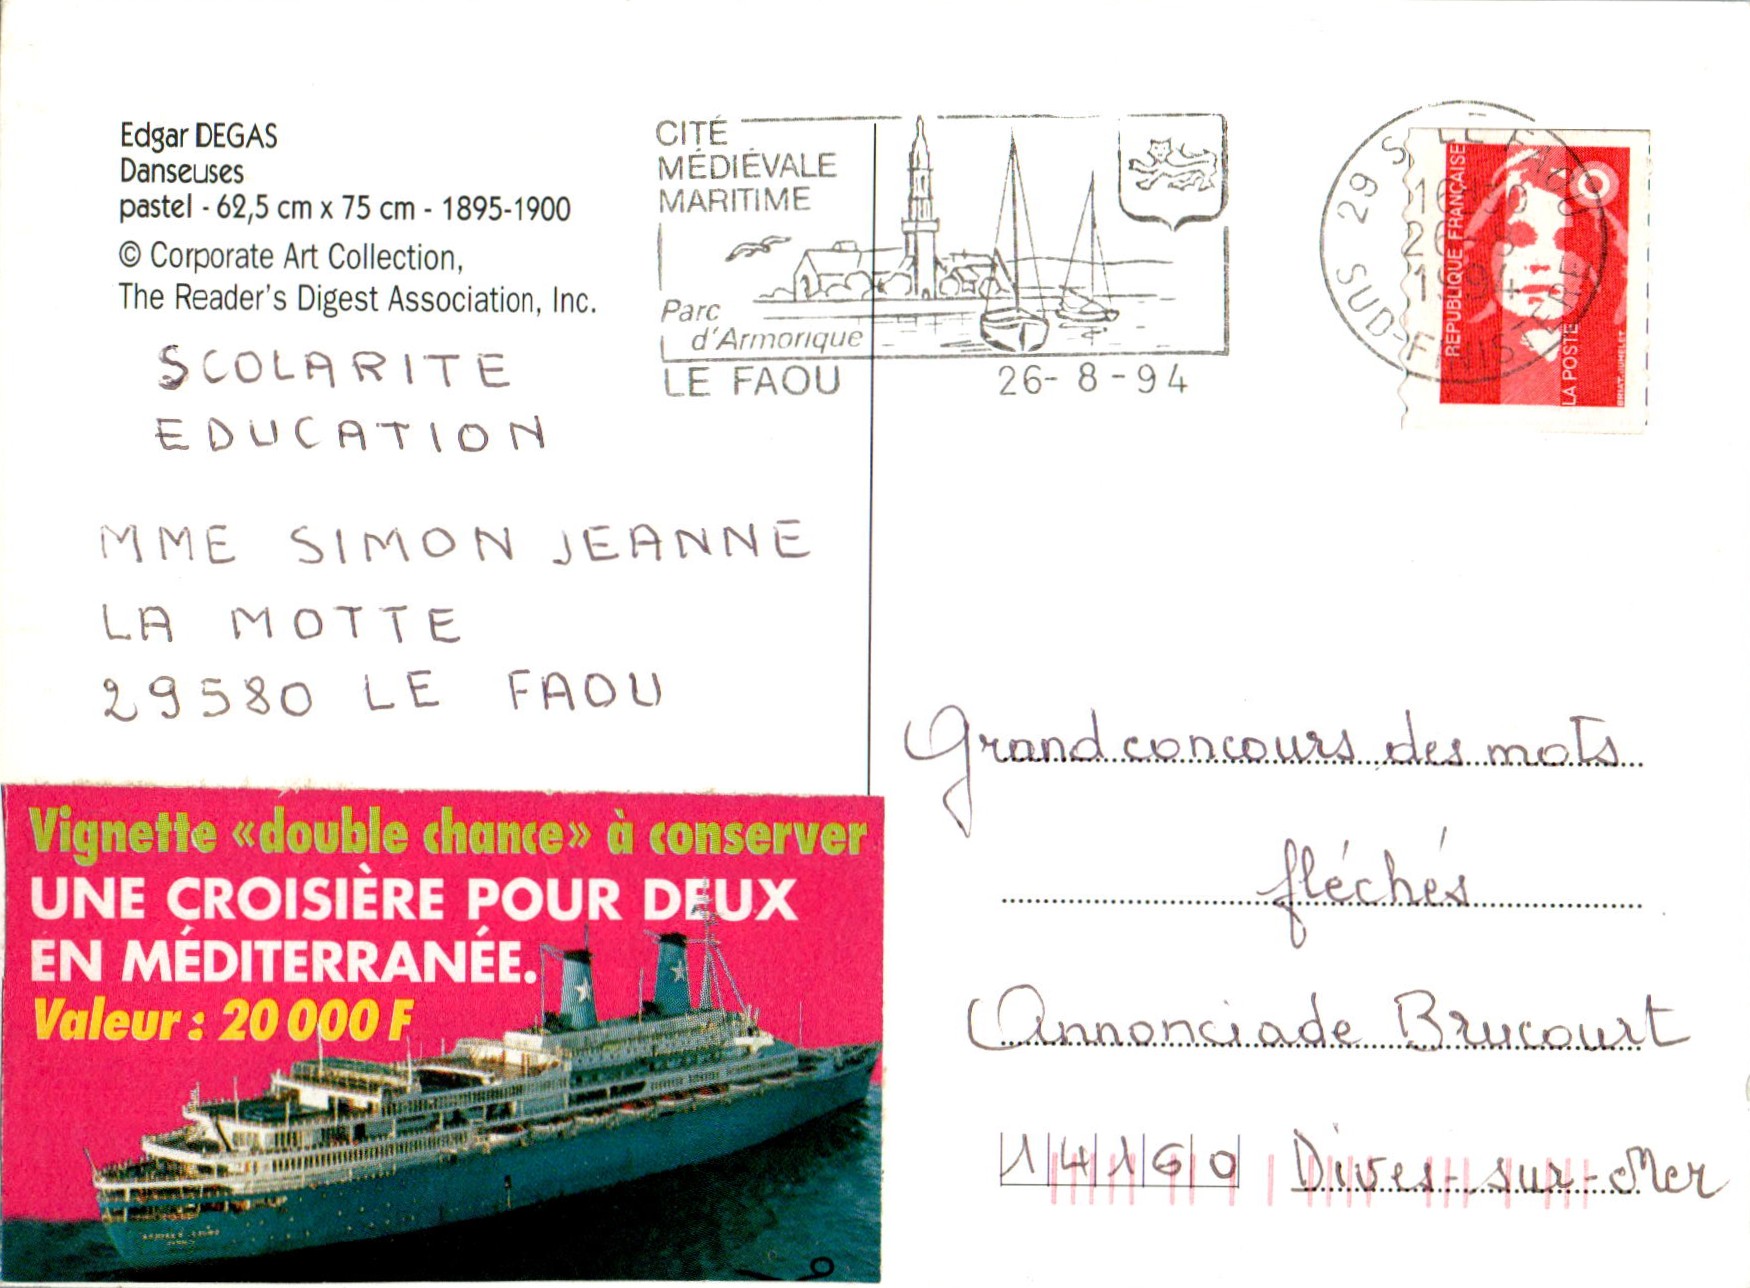 Edgar DEGAS
Danseuses
pastel - 62,5 cm x 75 cm - 1895-1900
© Corporate Art Collection,
The Reader's Digest Association, Inc.
SCOLARITE
EDUCATION
MME SIMON JEANNE
LA MOTTE
29580 LE FAOU
Vignette «double chance» à conserver
UNE CROISIÈRE POUR DEUX
EN MÉDITERRANÉE.
Valeur : 20 000 F
CITÉ
MÉDIÉVALE
MARITIME
Parc
d'Armorique
LE FAOU 26-8-94
29 S LE FAOU
26 8
1994
SUD-FINISTERE
REPUBLIQUE FRANÇAISE
LA POSTE
BRIAT-JUMELET
Grand concours des mots
fléchés
Annonciade Brucourt
14160 Dives-sur-Mer